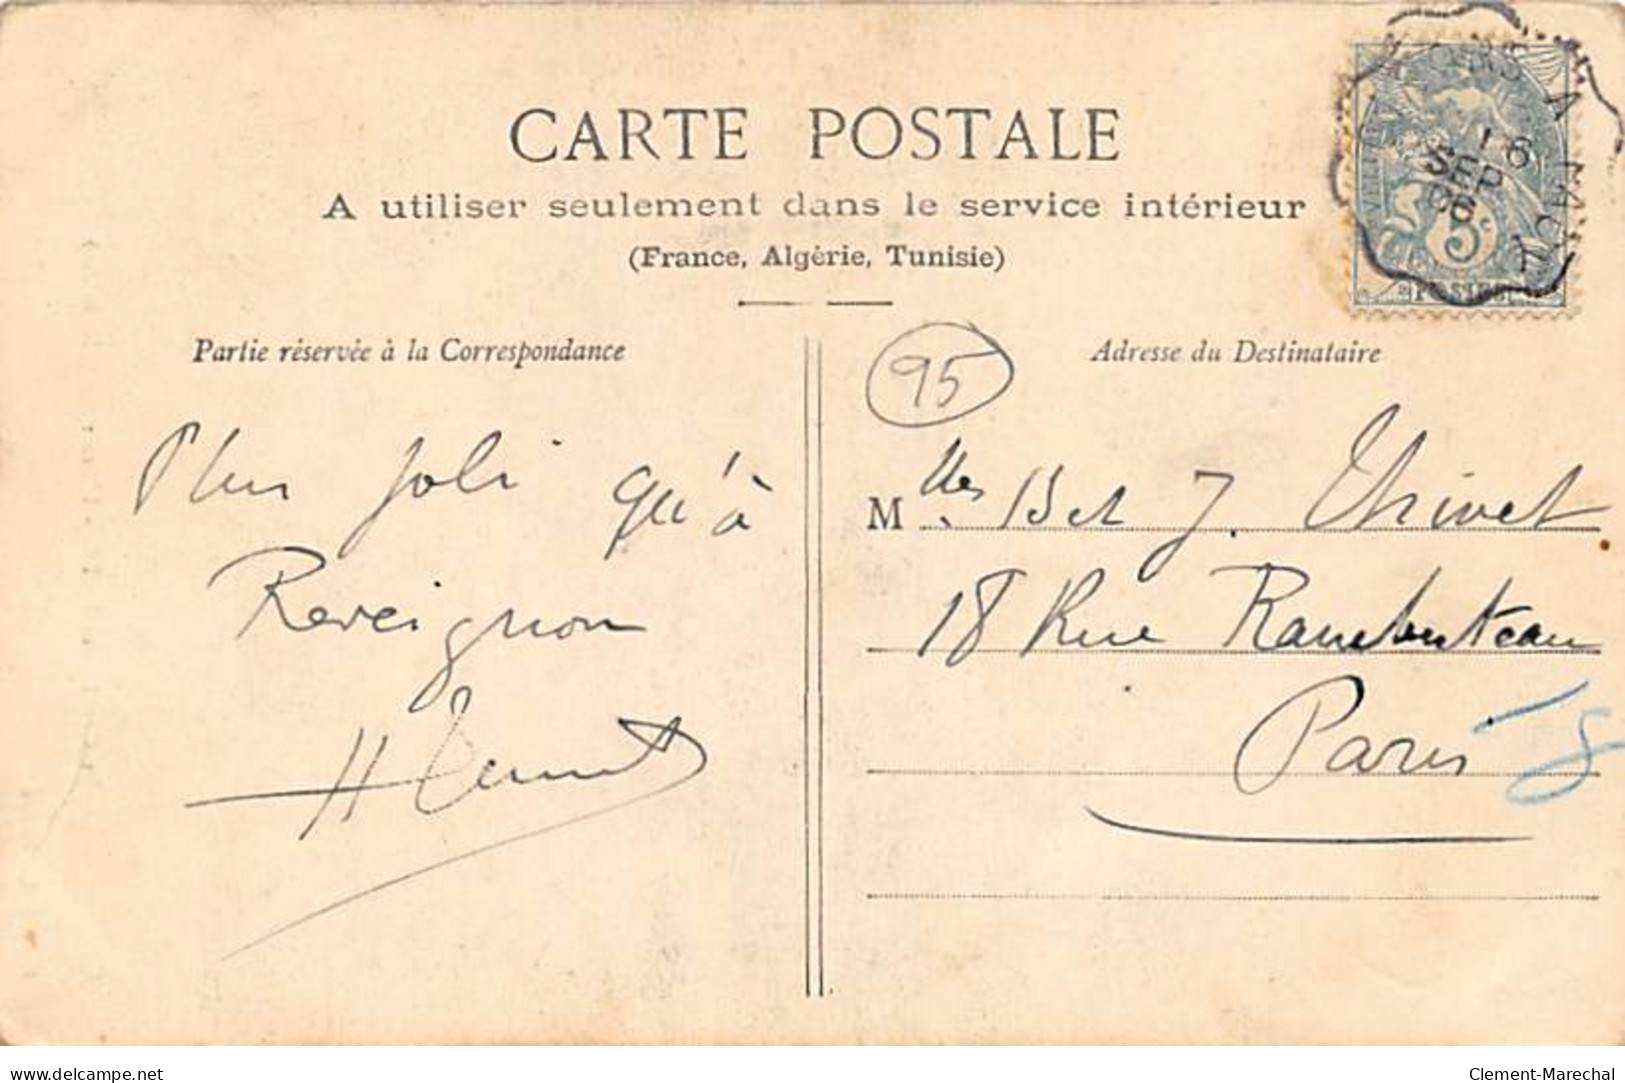 CARTE POSTALE
A utiliser seulement dans le service intérieur
(France, Algérie, Tunisie)
16
SEP
06
5c
POSTES
Partie réservée à la Correspondance
95
Adresse du Destinataire
Plus joli qu'à
Reveignon
H
Mlles B et J. Thivet
18 Rue Rambuteau
Paris
delcampe.net
Clement-Marechal